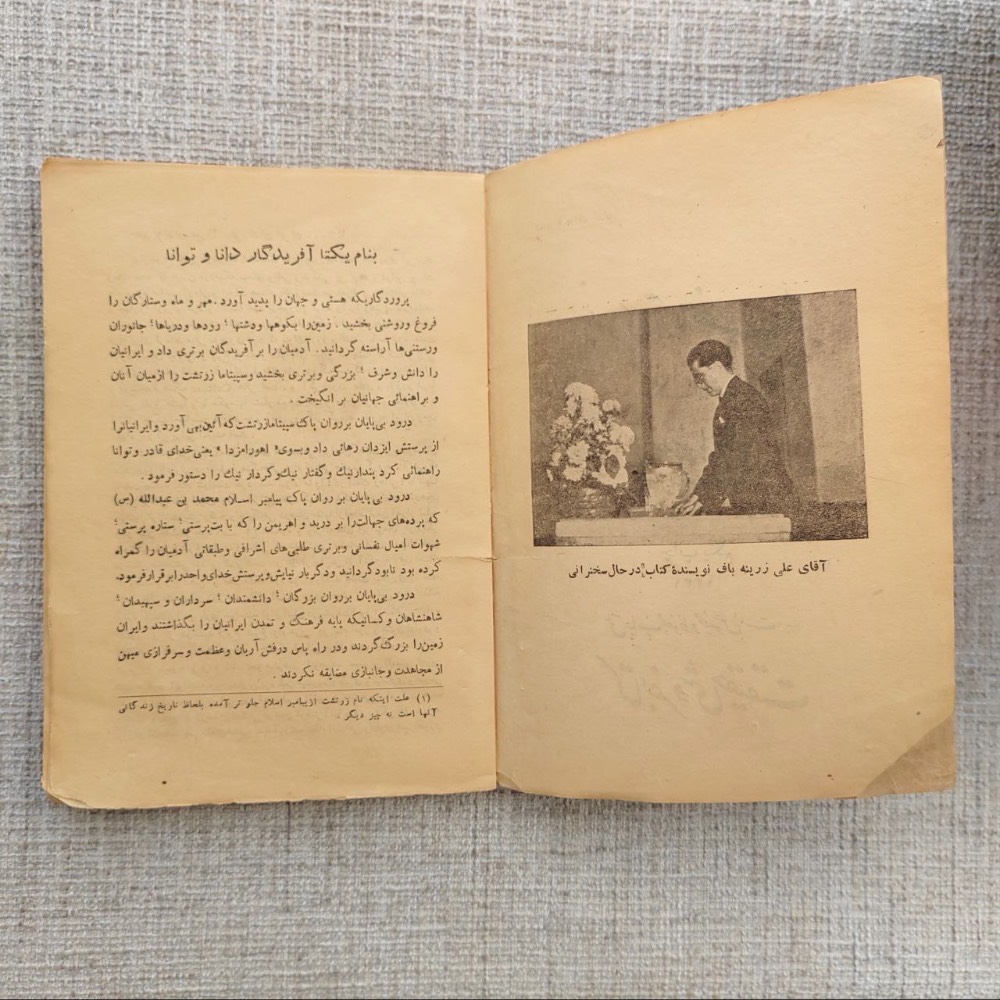 آقای علی زرینه باف نویسندهٔ کتاب در حال سخنرانی
بنام یکتا آفریدگار دانا و توانا
پروردگاریکه هستی و جهان را پدید آورد. مهر و ماه وستارگان را
فروغ وروشنی بخشید . زمین‌را بکوهها ودشتها ؛ رودها ودریاها؛ جانوران
ورستنی‌ها آراسته گردانید. آدمیان را بر آفریدگان برتری داد و ایرانیان
را دانش وشرف ؛ بزرگی وبرتری بخشید وسپیتاما زرتشت را ازمیان آنان
و براهنمائی جهانیان بر انگیخت .
درود بی‌پایان برروان پاک سپیتامازرتشت که آئین بهی آورد وایرانیانرا
از پرستش ایزدان رهائی داد وبسوی « اهورامزدا » یعنی خدای قادر وتوانا
راهنمائی کرد پندارنیك وگفتار نیك وکردار نیك را دستور فرمود .
درود بی‌پایان بر روان پاک پیامبر اسلام محمد بن عبدالله (س)
که پرده‌های جهالت‌را بر درید و اهریمن را که با بت‌پرستی؛ ستاره پرستی؛
شهوات امیال نفسانی وبرتری طلبی‌های اشرافی وطبقاتی آدمیان را گمراه
کرده بود نابود گردانید ودگربار نیایش وپرستش خدای واحدرا برقرار فرمود.
درود بی‌پایان برروان بزرگان؛ دانشمندان؛ سرداران و سپهبدان؛
شاهنشاهان وکسانیکه پایه فرهنگ و تمدن ایرانیان را بگذاشتند وایران
زمین‌را بزرگ گردند ودر راه پاس درفش آریان وعظمت و سرفرازی میهن
از مجاهدت وجانبازی مضایقه نکردند .
(۱) علت اینکه نام زرتشت ازپیامبر اسلام جلو تر آمده بلحاظ تاریخ زندگانی
آنها است نه چیز دیگر .